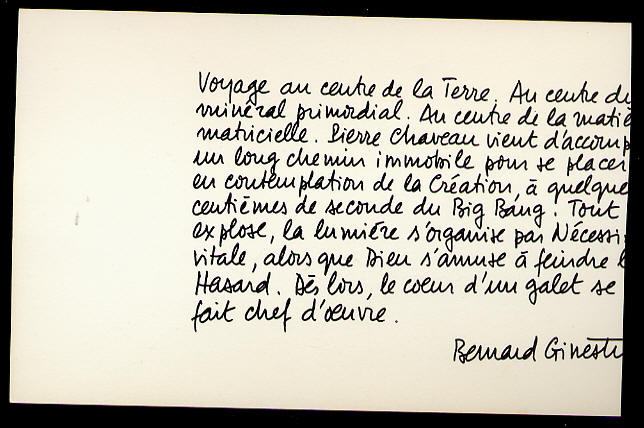 Voyage au centre de la Terre. Au centre du
minéral primordial. Au centre de la matiè
matricielle. Pierre Chaveau vient d'accomp
un long chemin immobile pour se placer
en contemplation de la Création, à quelque
centièmes de seconde du Big Bang. Tout
explose, la lumière s'organise par Nécessi
vitale, alors que Dieu s'amuse à feindre l
Hasard. Dès lors, le coeur d'un galet se
fait chef d'œuvre.
Bernard Ginest